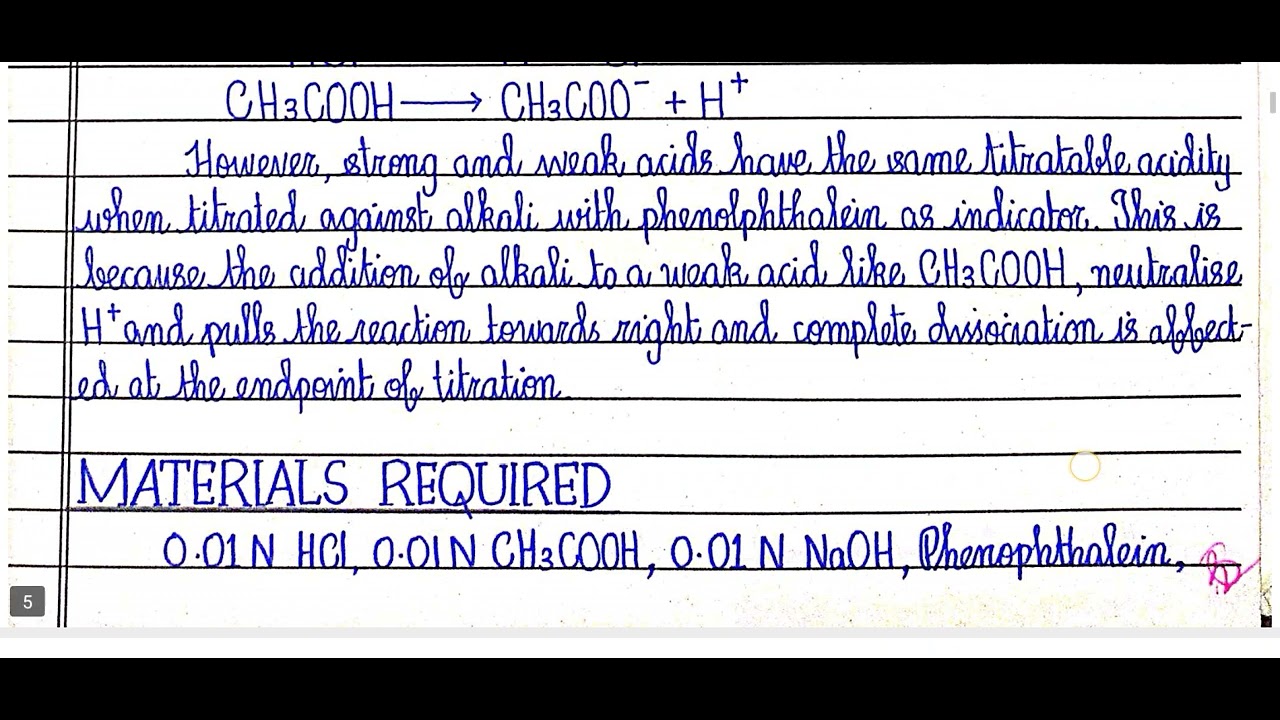 CH3COOH ⟶ CH3COO⁻ + H⁺
However, strong and weak acids have the same titratable acidity
when titrated against alkali with phenolphthalein as indicator. This is
because the addition of alkali to a weak acid like CH3COOH, neutralise
H⁺ and pulls the reaction towards right and complete dissociation is affect-
ed at the endpoint of titration
MATERIALS REQUIRED
0.01 N HCl, 0.01 N CH3COOH, 0.01 N NaOH, Phenophthalein,
5